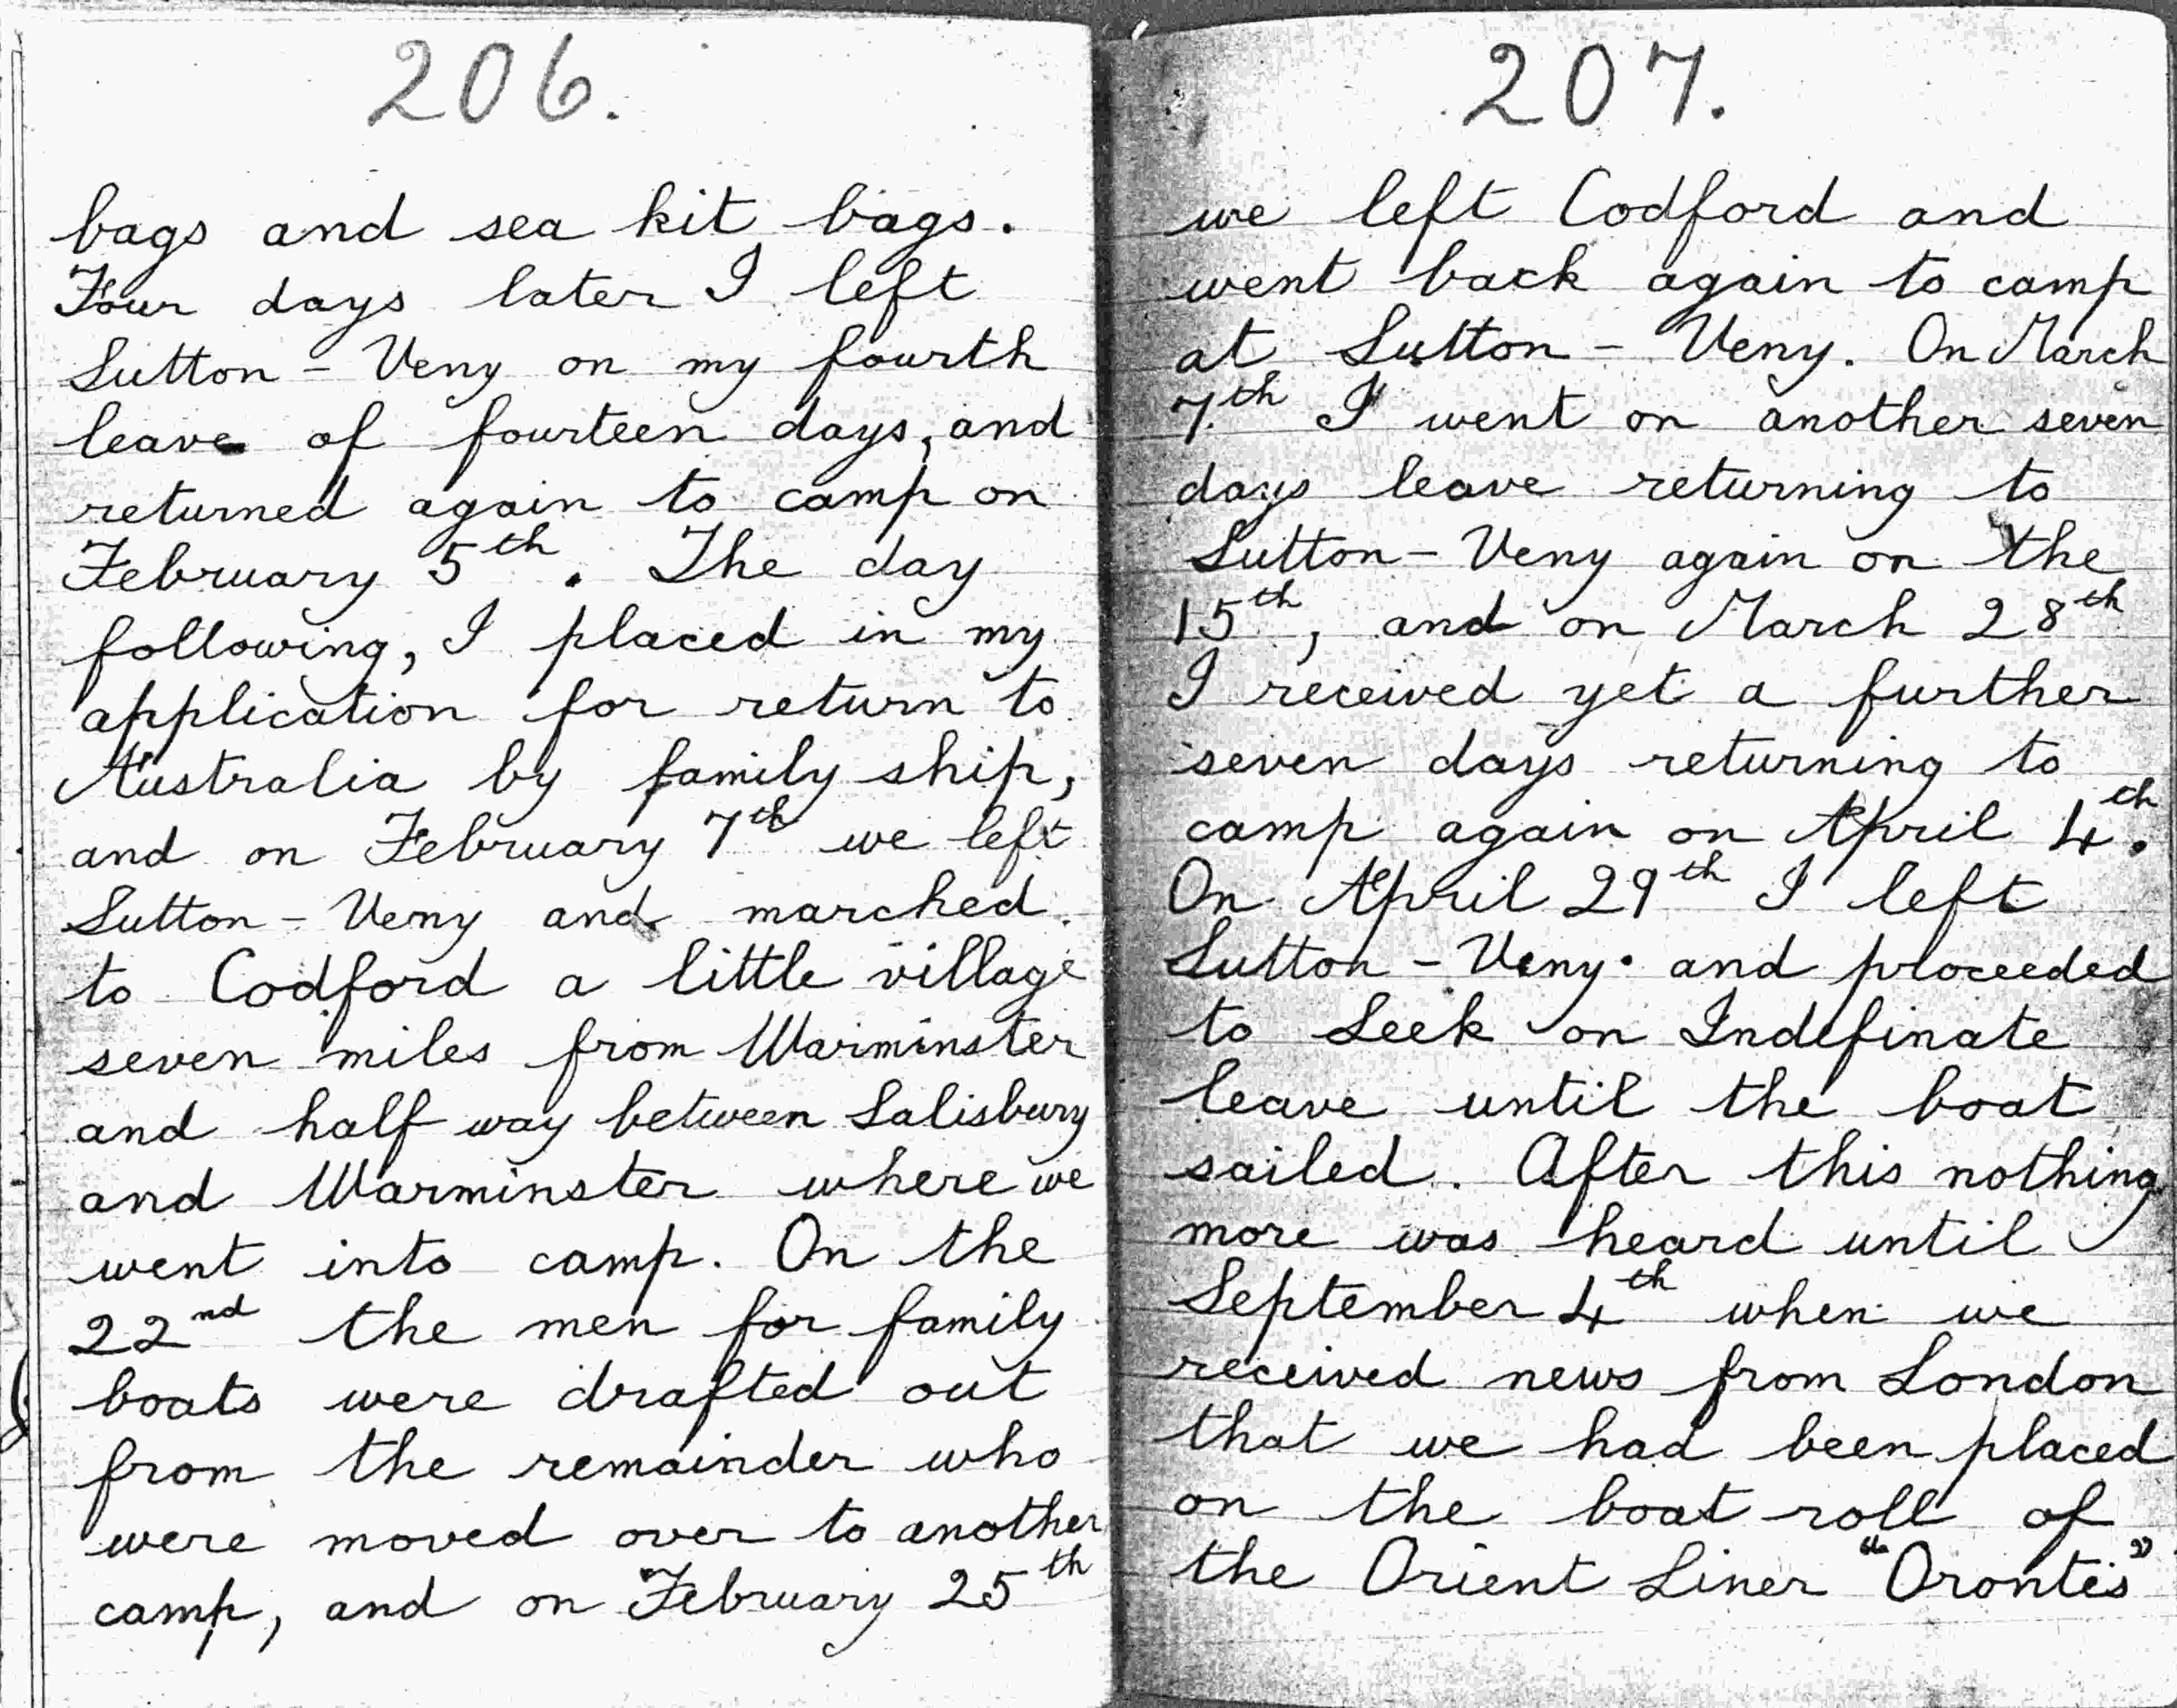 206.
bags and sea kit bags.
Four days later I left
Sutton - Veny on my fourth
leave of fourteen days, and
returned again to camp on
February 5th. The day
following, I placed in my
application for return to
Australia by family ship,
and on February 7th we left
Sutton - Veny and marched
to Codford a little village
seven miles from Warminster
and half way between Salisbury
and Warminster where we
went into camp. On the
22nd the men for family
boats were drafted out
from the remainder who
were moved over to another
camp, and on February 25th
207.
we left Codford and
went back again to camp
at Sutton - Veny. On March
7th I went on another seven
days leave returning to
Sutton - Veny again on the
15th, and on March 28th
I received yet a further
seven days returning to
camp again on April 4th.
On April 29th I left
Sutton - Veny. and proceeded
to Leek on Indefinate
leave until the boat
sailed. After this nothing
more was heard until
September 4th when we
received news from London
that we had been placed
on the boat roll of
the Orient Liner "Orontes"